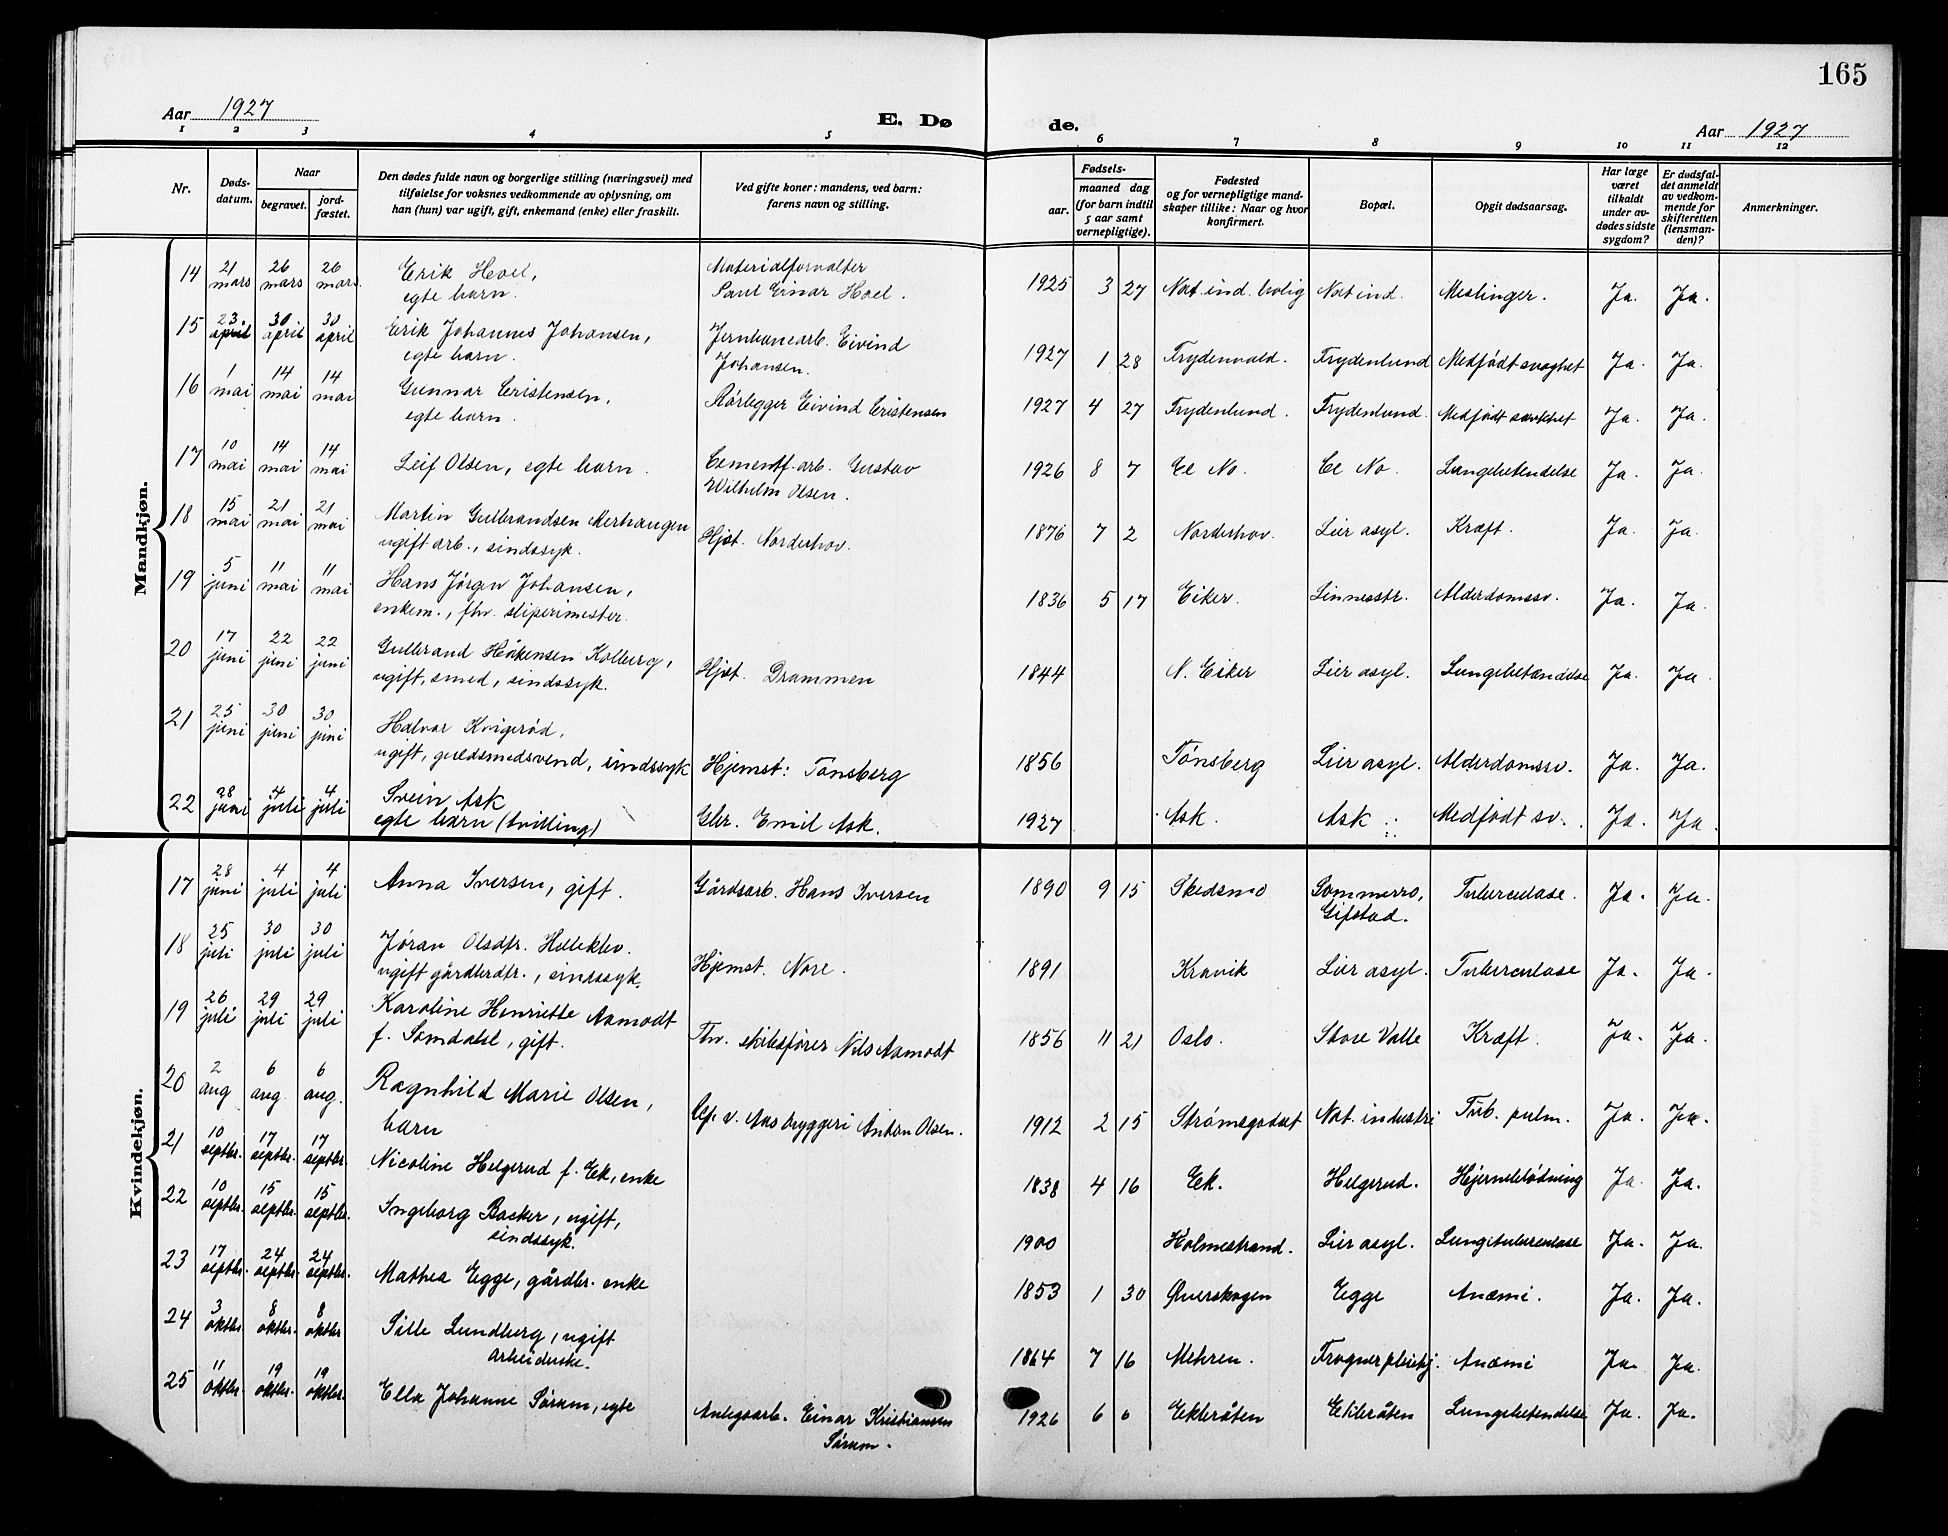 165
Aar 1927
E. Dø
de.
Aar 1927
1 2 3 4 5 6 7 8 9 10 11 12
Nr.
Døds-
datum.
Naar
begravet.
jord-
fæstet.
Den dødes fulde navn og borgerlige stilling (næringsvei) med
tilføielse for voksnes vedkommende av oplysning, om
han (hun) var ugift, gift, enkemand (enke) eller fraskilt.
Ved gifte koner: mandens, ved barn:
farens navn og stilling.
Fødsels-
aar.
maaned dag
(for barn indtil
5 aar samt
vernepligtige).
Fødested
og for vernepligtige mand-
skaper tillike: Naar og hvor
konfirmert.
Bopæl.
Opgit dødsaarsag.
Har læge
været
tilkaldt
under av-
dødes sidste
sygdom?
Er dødsfal-
det anmeldt
av vedkom-
mende for
skifteretten
(lensman-
den)?
Anmerkninger.
Mandkjøn.
14 21 mars 26 mars 26 mars Erik Hoel, Materialforvalter
egte barn. Paul Einar Hoel. 1925 3 27 Nat. ind. bolig Nat ind. Meslinger. Ja. Ja.
15 23 april 30 april 30 april Erik Johannes Johansen, Jernbanearb. Eivind
egte barn. Johansen. 1927 1 28 Frydenvold. Frydenlund Medfødt svaghet Ja. Ja.
16 1 mai 14 mai 14 mai Gunnar Cristensen, Rørlegger Eivind Cristensen
egte barn. 1927 4 27 Frydenlund. Frydenlund. Medfødt svakhet Ja. Ja.
17 10 mai 14 mai 14 mai Leif Olsen, egte barn. Cementf. arb. Gustav
Wilhelm Olsen. 1926 8 7 Ce No. Ce No. Lungebetendelse Ja. Ja.
18 15 mai 21 mai 21 mai Martin Gulbrandsen Merhaugen
ugift arb., sindssyk. Hjst. Norderhov. 1876 7 2 Norderhov. Lier asyl. Kræft. Ja. Ja.
19 5 juni 11 mai 11 mai Hans Jørgen Johansen,
enkem., fhv. sliperimester. 1836 5 17 Eiker. Linnesstr. Alderdomssv. Ja. Ja.
20 17 juni 22 juni 22 juni Gulbrand Håkensen Kolberg,
ugift, smed, sindssyk. Hjst. Drammen 1844 N. Eiker Lier asyl. Lungebetændelse Ja. Ja.
21 25 juni 30 juni 30 juni Halvor Kvigerød,
ugift, guldsmedsvend, sindssyk Hjemst: Tønsberg 1856 Tønsberg Lier asyl. Alderdomssv. Ja. Ja.
22 28 juni 4 juli 4 juli Svein Ask
egte barn (tvilling) Gbr. Emil Ask. 1927 Ask. Ask Medfødt sv. Ja. Ja.
Kvindekjøn.
17 28 juni 4 juli 4 juli Anna Iversen, gift. Gårdsarb. Hans Iversen 1890 9 15 Skedsmo Sommerro,
Gifstad. Tuberculose. Ja. Ja.
18 25 juli 30 juli 30 juli Jøran Olsdtr.
ugift gårdbrdtr., sindssyk. Hjemst. Nore. 1891 Kravik Lier asyl. Tuberculose Ja. Ja.
19 26 juli 29 juli 29 juli Karoline Henriette Aamodt
f. Somdalsl, gift. Fhv. skibsfører Nils Aamodt 1856 11 21 Oslo. Store Valle Kræft. Ja. Ja.
20 2 aug 6 aug. 6 aug. Ragnhild Marie Olsen,
barn v. Aas bryggeri Anton Olsen. 1912 2 15 Strømsgodset Nat. industri Tub. pulm. Ja. Ja.
21 10 septbr. 17 septbr. 17 septbr. Nicoline Helgerud f. Ek, enke 1838 4 16 Ek. Helgerud. Hjerneblødning Ja. Ja.
22 10 septbr. 15 septbr. 15 septbr. Ingeborg Backer, ugift,
sindssyk. 1900 Holmestrand. Lier asyl. Lungetuberculose Ja. Ja.
23 17 septbr. 24 septbr. 24 septbr. Mathea Egge, gårdbr. enke 1853 1 30 Øverskogen Egge Anæmi. Ja. Ja.
24 3 oktbr. 8 oktbr. 8 oktbr. Sille Lundberg, ugift
arbeiderske. 1864 7 16 Mehren. Frogner pleiehj. Anæmi Ja. Ja.
25 11 oktbr. 19 oktbr. 19 oktbr. Ella Johanne Sørum, egte Anlegsarb. Einar Kristiansen
Sørum. 1926 6 6 Ekbråten Ekbråten Lungebetendelse Ja. Ja.